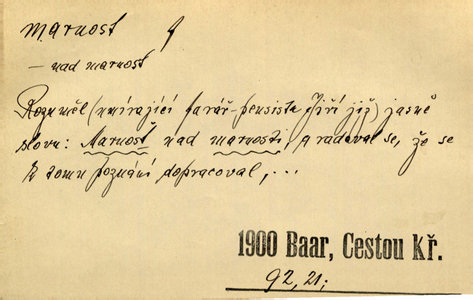 marnost f
– nad marnost
Rozuměl (umírající farář-pensista Jiří již) jasně
slovu: Marnost nad marnosti, a radoval se, že se
k tomu poznání dopracoval, ...
1900 Baar, Cestou Kř.
92, 21;